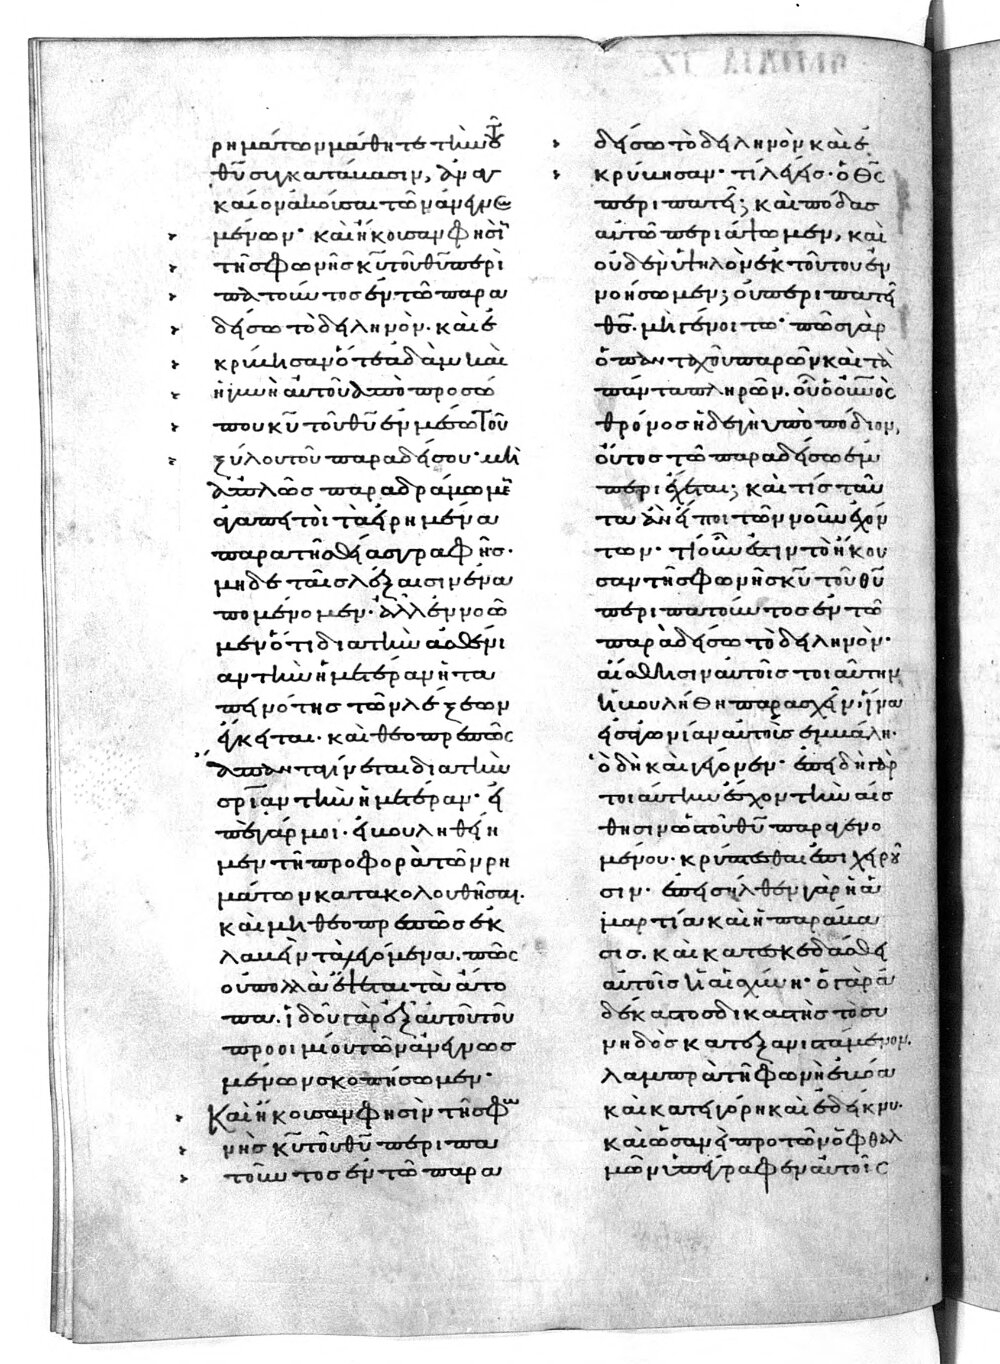 ρημάτων μάθητε τὴν τοῦ
θῦ συγκατάβασιν, ἀναγ
καῖον ἀκοῦσαι τῶν ἀνεγνω
σμένων· καὶ ἤκουσαν φησὶ
τῆς φωνῆς κῦ τοῦ θῦ περι
πατοῦντος ἐν τῶ παρα
δείσω τὸ δειληνὸν· καὶ ἐ
κρύβησαν ὅ τε ἀδὰμ καὶ
ἡ γυνὴ αὐτοῦ ἀπὸ προσώ
που κῦ τοῦ θῦ ἐν μέσω τοῦ
ξύλου τοῦ παραδείσου· μὴ
ἁπλῶς παραδράμωμεν
ἀγαπητοὶ τὰ εἰρημένα
παρὰ τῆς θείας γραφῆς·
μηδὲ ταῖς λέξεσιν ἐνα
πομένομεν· ἀλλ' ἐννοῶ
μεν ὅτι διὰ τὴν ἀσθένι
αν τὴν ἡμετέραν ἡ τα
πεινότης τῶν λέξεων
ἔγκειται· καὶ θεοπρεπῶς
ἅπαντα γίνεται διὰ τὴν
σρίαν τὴν ἡμετέραν· εἰ
πὲ γάρ μοι· εἰ βουληθείη
μεν τῆ προφορὰ τῶν ῥη
μάτων κατακολουθῆσαι·
καὶ μὴ θεοπρεπῶς ἐκ
λαβεῖν τὰ λεγόμενα· πῶς
οὐ πολλὰ ἕψεται τὰ ἄτο
πα· ἰδοὺ γὰρ ἐξ αὐτοῦ τοῦ
προοιμίου τῶν ἀνεγνωσ
μένων σκοπήσωμεν·
Καὶ ἤκουσαν φησὶν τῆς φω
νῆς κῦ τοῦ θῦ περιπα
τοῦντος ἐν τῶ παρα
δείσω τὸ δειληνὸν καὶ ἐ
κρύβησαν· τί λέγεις· ὁ θς
περιπατεῖ; καὶ πόδας
αὐτῶ περιάψωμεν, καὶ
οὐδὲν ὑψηλὸν ἐκ τούτου ἐν
νοήσωμεν; οὐ περιπατεῖ
θς· μὴ γένοιτω· πῶς γὰρ
ὁ πανταχοῦ παρῶν καὶ τὰ
πάντα πληρῶν· οὗ ὁ οὐνὸς
θρόνος ἡ δὲ γῆ ὑποπόδιον,
οὗτος τῶ παραδείσω ἐμ
περιέχεται; καὶ τίς ταῦ
τα ἂν εἴποι τῶν νοῦν ἐχόν
των· τί οὖν ἐστιν τὸ ἤκου
σαν τῆς φωνῆς κῦ τοῦ θῦ
περιπατοῦντος ἐν τῶ
παραδείσω τὸ δειληνὸν·
αἴσθησιν αὐτοῖς τοιαύτην
ἠβουλήθη παρασχεῖν· ἵνα
εἰς ἀγωνίαν αὐτοὺς ἐμβάλη·
ὃ δὴ καὶ γέγονεν· ἐπειδὴ γὰρ
τοιαύτην ἔσχον τὴν αἴσ
θησιν ὡς τοῦ θῦ παραγενο
μένου· κρύπτεσθαι ἐπιχειροῦ
σιν· ἐπεισῆλθεν γὰρ ἡ ἁ
μαρτία καὶ ἡ παράβα
σις· καὶ κατεσκεδάσθη
αὐτοῖς ἡ αἰσχύνη· ὁ γὰρ ἀ
δέκαστος δικαστὴς τὸ συ
νηδὸς κατεξανιστάμενον·
λαμπρᾶ τῆ φωνῆ ἐβόα
καὶ κατηγόρη καὶ ἐδείκνυ·
καὶ ὡσανεὶ πρὸ τῶν ὀφθαλ
μῶν ὑπέγραφεν αὐτοῖς